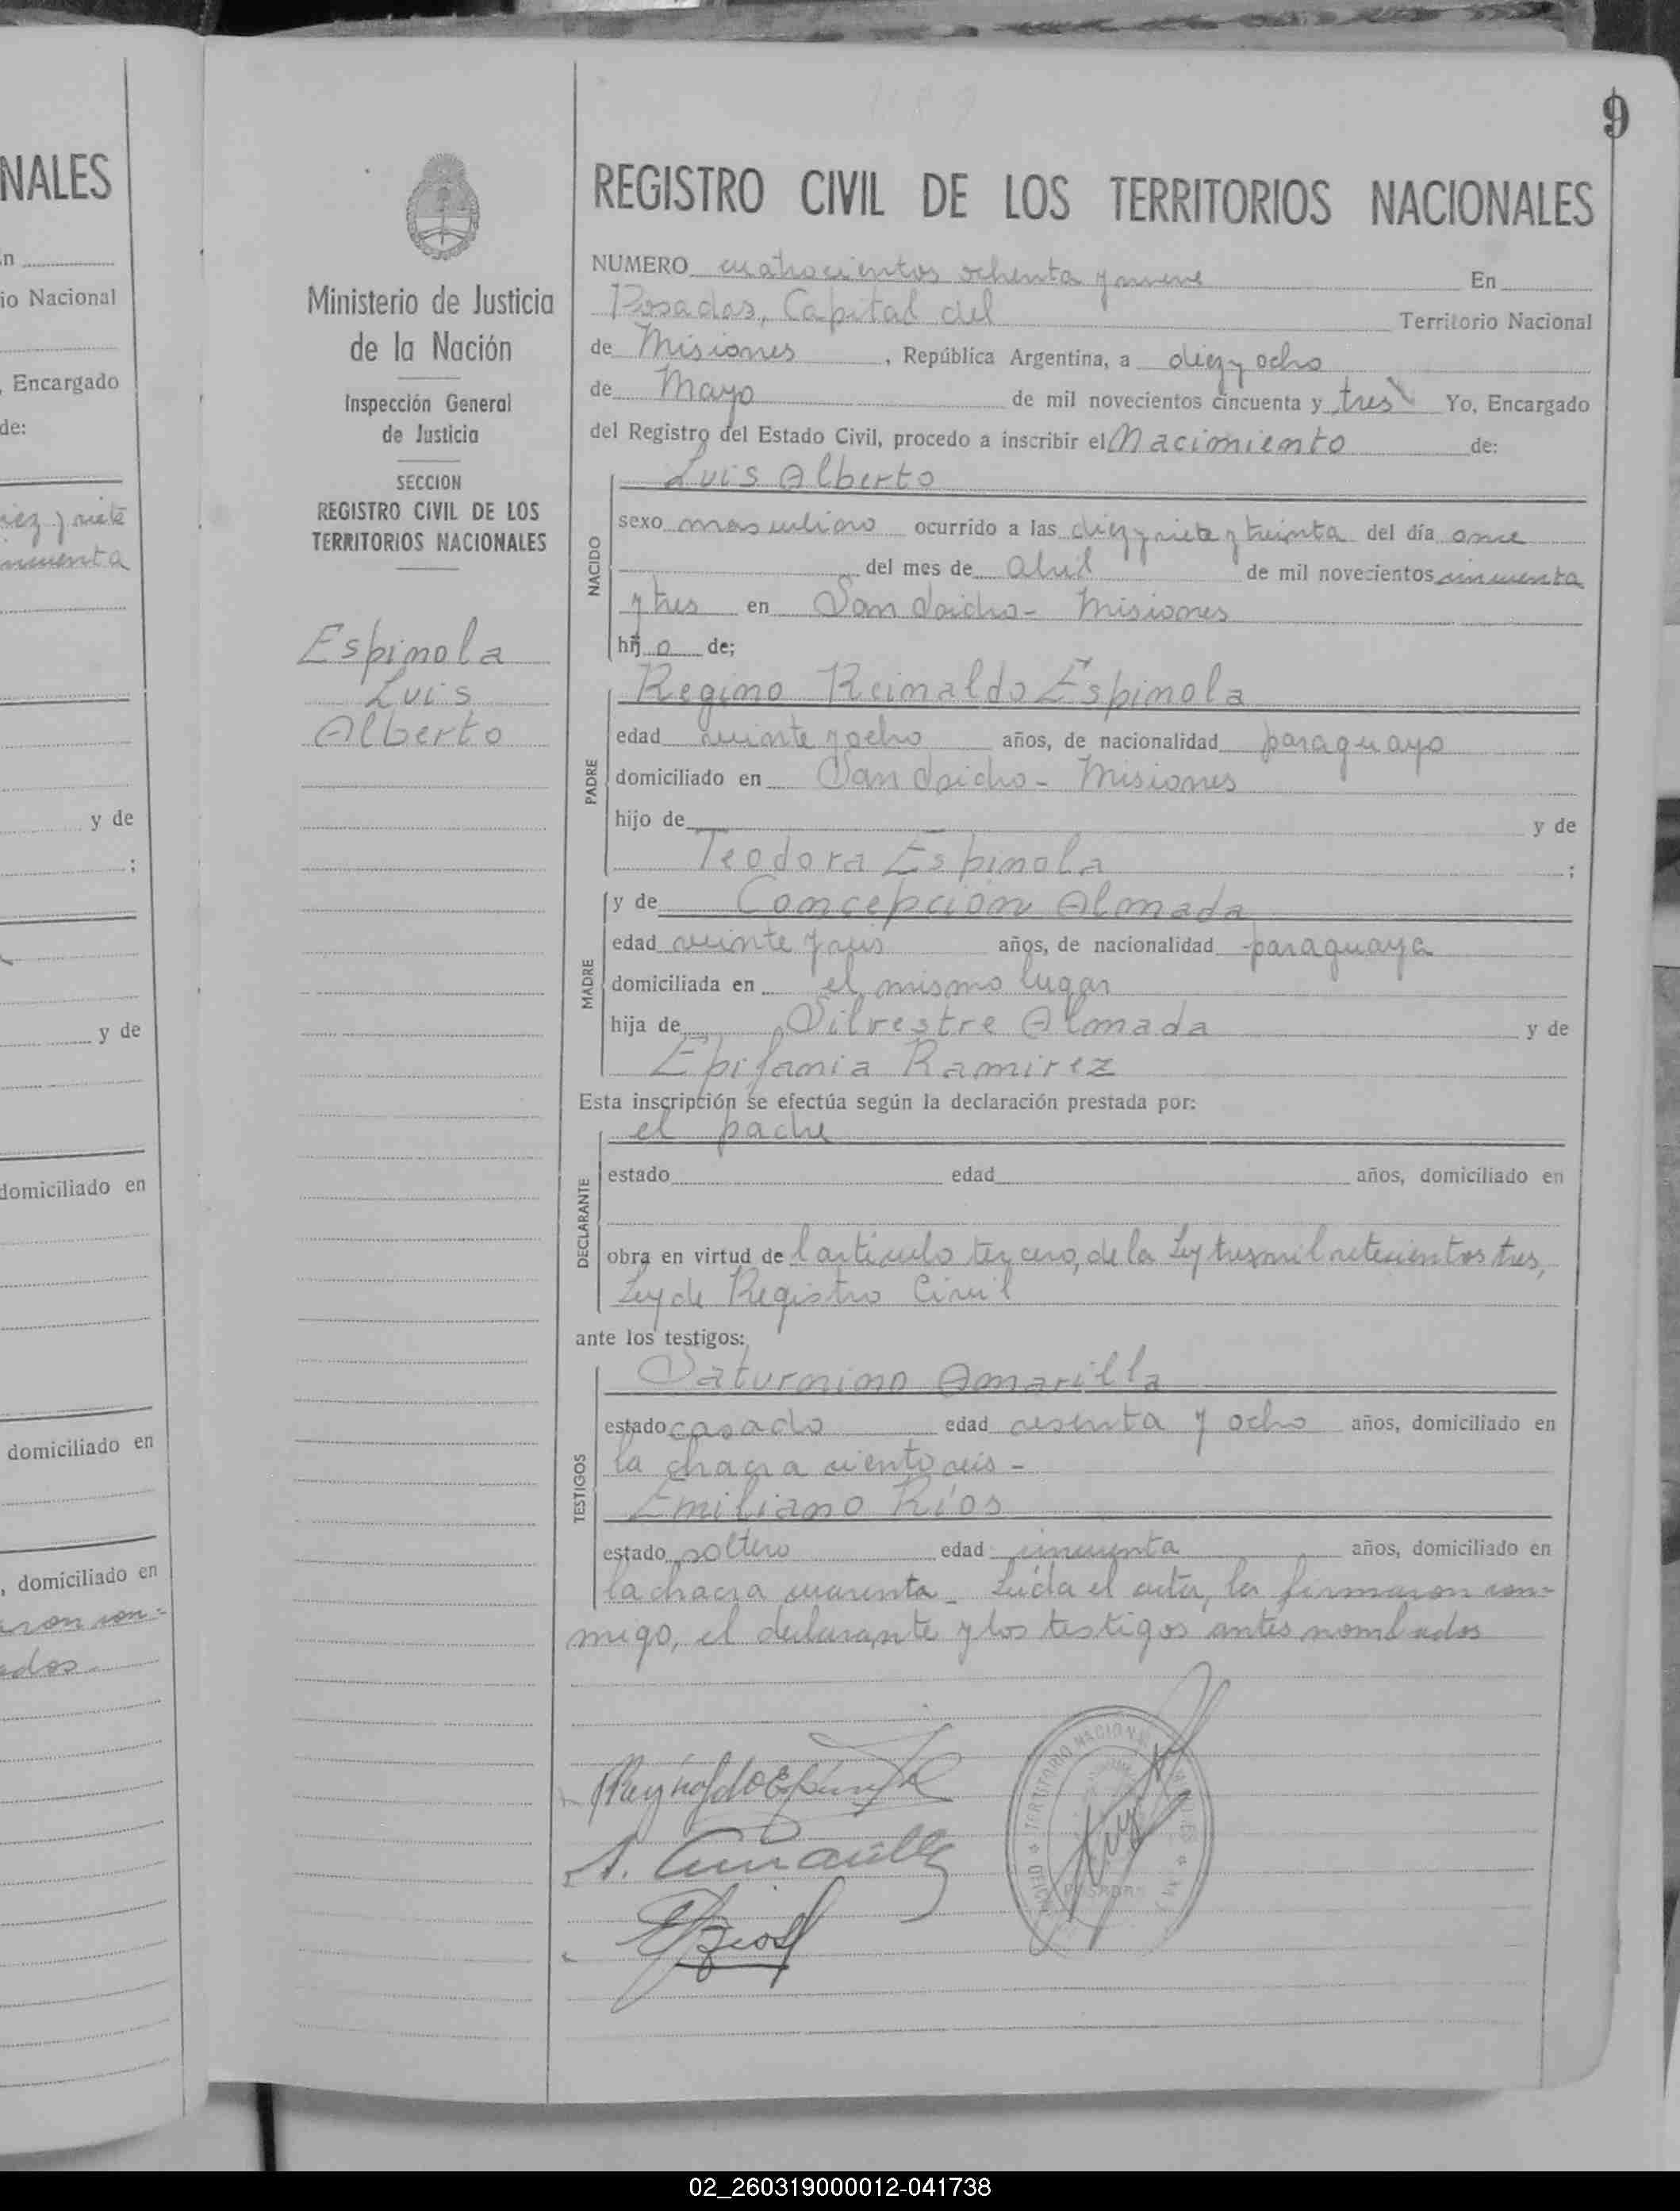 NALES
n
io Nacional
, Encargado
de:
iez y siete
incuenta
y de
;
y de
domiciliado en
domiciliado en
, domiciliado en
aron con-
ados
9
Ministerio de Justicia
de la Nación
Inspección General
de Justicia
SECCION
REGISTRO CIVIL DE LOS
TERRITORIOS NACIONALES
Espinola
Luis
Alberto
REGISTRO CIVIL DE LOS TERRITORIOS NACIONALES
NUMERO cuatrocientos ochenta y nueve En
Posadas, Capital del Territorio Nacional
de Misiones, República Argentina, a diez y ocho
de Mayo de mil novecientos cincuenta y tres Yo, Encargado
del Registro del Estado Civil, procedo a inscribir el Nacimiento de:
NACIDO
Luis Alberto
sexo masculino ocurrido a las diez y siete y treinta del día once
del mes de Abril de mil novecientos cincuenta
y tres en San Isidro - Misiones
hijo de;
PADRE
Regino Reinaldo Espinola
edad veinte y ocho años, de nacionalidad paraguayo
domiciliado en San Isidro - Misiones
hijo de y de
Teodora Espinola ;
MADRE
y de Concepción Almada
edad veinte y seis años, de nacionalidad paraguaya
domiciliada en el mismo lugar
hija de Silvestre Almada y de
Epifania Ramirez
Esta inscripción se efectúa según la declaración prestada por:
DECLARANTE
el padre
estado edad años, domiciliado en
obra en virtud de l artículo tercero, de la Ley tres mil setecientos tres,
Ley de Registro Civil
ante los testigos:
TESTIGOS
Saturnino Amarilla
estado casado edad sesenta y ocho años, domiciliado en
la chacra ciento seis -
Emiliano Ríos
estado soltero edad cincuenta años, domiciliado en
la chacra cuarenta - Leída el acta, la firmaron con-
migo, el declarante y los testigos antes nombrados
Reynaldo Espinola
S. Amarilla
E Rios
TERRITORIO NACIONAL
POSADAS
02_260319000012-041738